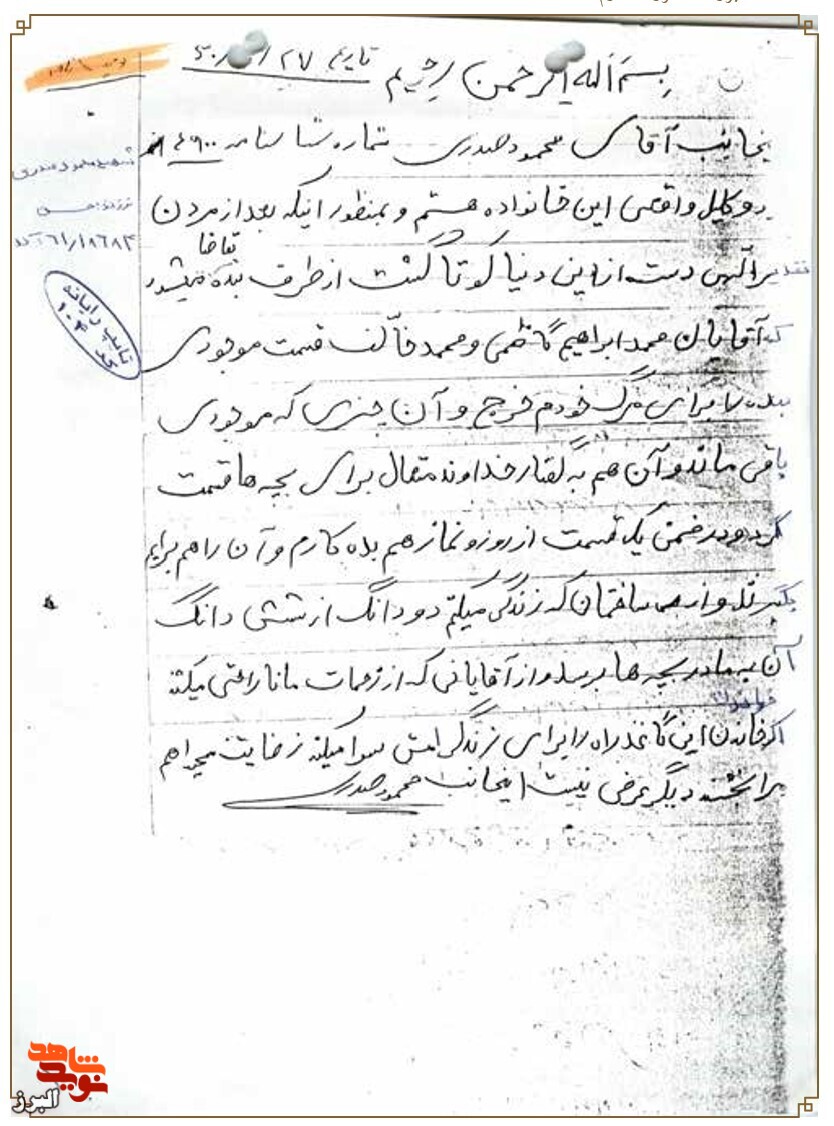 بسم اله الرحمن رحیم تاریخ ۲۷
اینجانب آقای محمود صدری شماره شناسنامه ۴۹۰۰
و وکیل واقعی این خانواده هستم و بمنظور اینکه بعد از مردن
تقدیر الهی دست از این دنیا کوتا گشت از طرف بنده تقاضا میشود
که آقایان محمد ابراهیم کاظمی و محمد قسمت موجودی
بنده را برای مرگ خودم خرج و آن چیزی که موجودی
باقی ماند و آن هم به گفتار خداوند متعال برای بچه ها قسمت
گردد و در ضمن یک قسمت از روزه و نماز هم بده کارم و آن را هم برایم
بگیرند و از ساختمان که زندگی میکنم دو دانگ از شش دانگ
آن به مادر بچه ها برسد و از آقایانی که از زحمات ما ناراحتی میکشند
خواندن
اگر این کاغذ راه را برای زندگی سوا میکند رضایت میخواهم
مرا ببخشند دیگر عرضی نیست اینجانب محمود صدری
شهید محمود صدری
فرزند: حسن
۶۱/۱۸۶۸۳
تایپ رایانه
کد ۱۰۳
شاهد
نوید
البرز